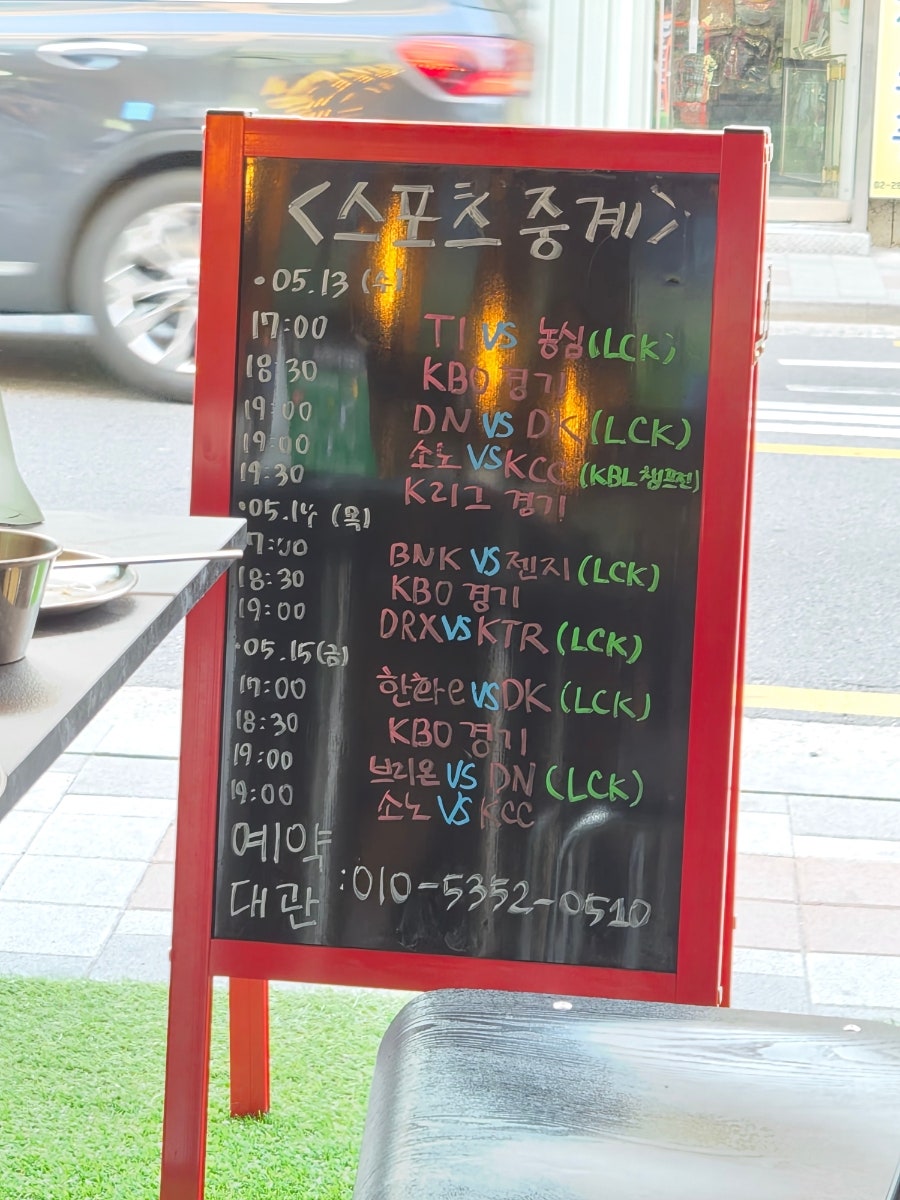 <스포츠 중계>
•05.13 (수)
17:00 T1 VS 농심 (LCK)
18:30 KBO 경기
19:00 DN VS DK (LCK)
19:00 소노 VS KCC (KBL 챔프전)
19:30 K리그 경기
•05.14 (목)
17:00 BNK VS 젠지 (LCK)
18:30 KBO 경기
19:00 DRX VS KTR (LCK)
•05.15 (금)
17:00 한화e VS DK (LCK)
18:30 KBO 경기
19:00 브리온 VS DN (LCK)
19:00 소노 VS KCC
예약
대관 : 010-5352-0510